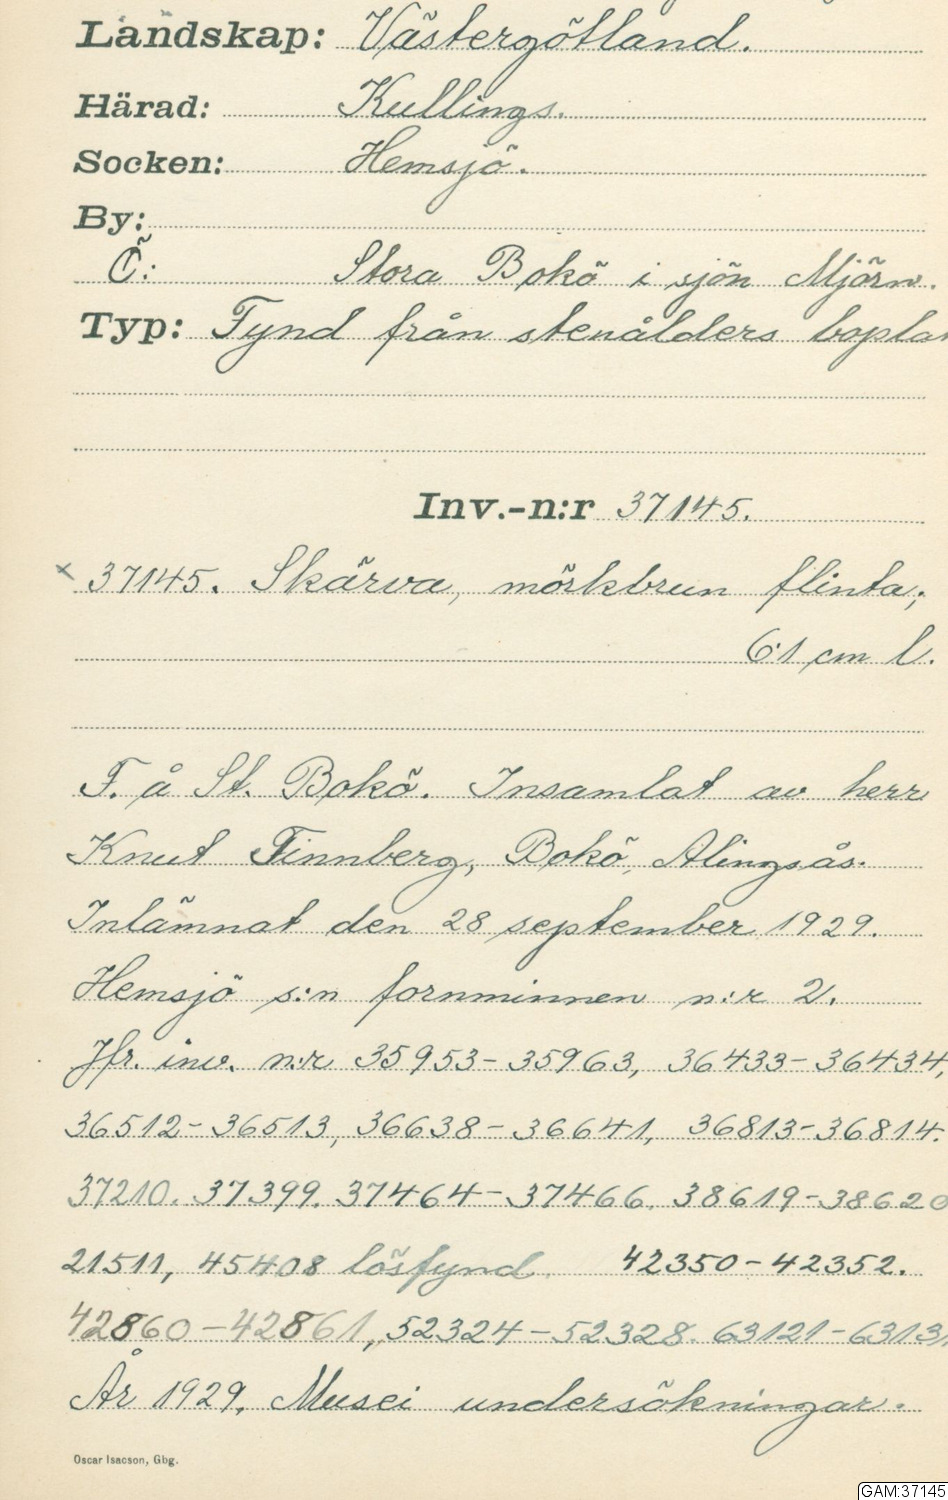 Landskap: Västergötland.
Härad: Kullings.
Socken: Hemsjö.
By:
Ö: Stora Bokö i sjön Mjörn.
Typ: Fynd från stenålders bopla
Inv.-n:r 37145.
× 37145. Skärva, mörkbrun flinta;
6·1 cm l.
F. å St. Bokö. Insamlat av herr
Knut Finnberg, Bokö, Alingsås.
Inlämnat den 28 september 1929.
Hemsjö s:n fornminnen n:r 2.
Jfr. inv. n:r 35953-35963, 36433-36434,
36512-36513, 36638-36641, 36813-36814.
37210. 37399. 37464-37466. 38619-38620
21511, 45408 lösfynd 42350-42352.
42860-42861, 52324-52328. 63121-6313
År 1929. Musei undersökningar.
Oscar Isacson, Gbg.
GAM:37145